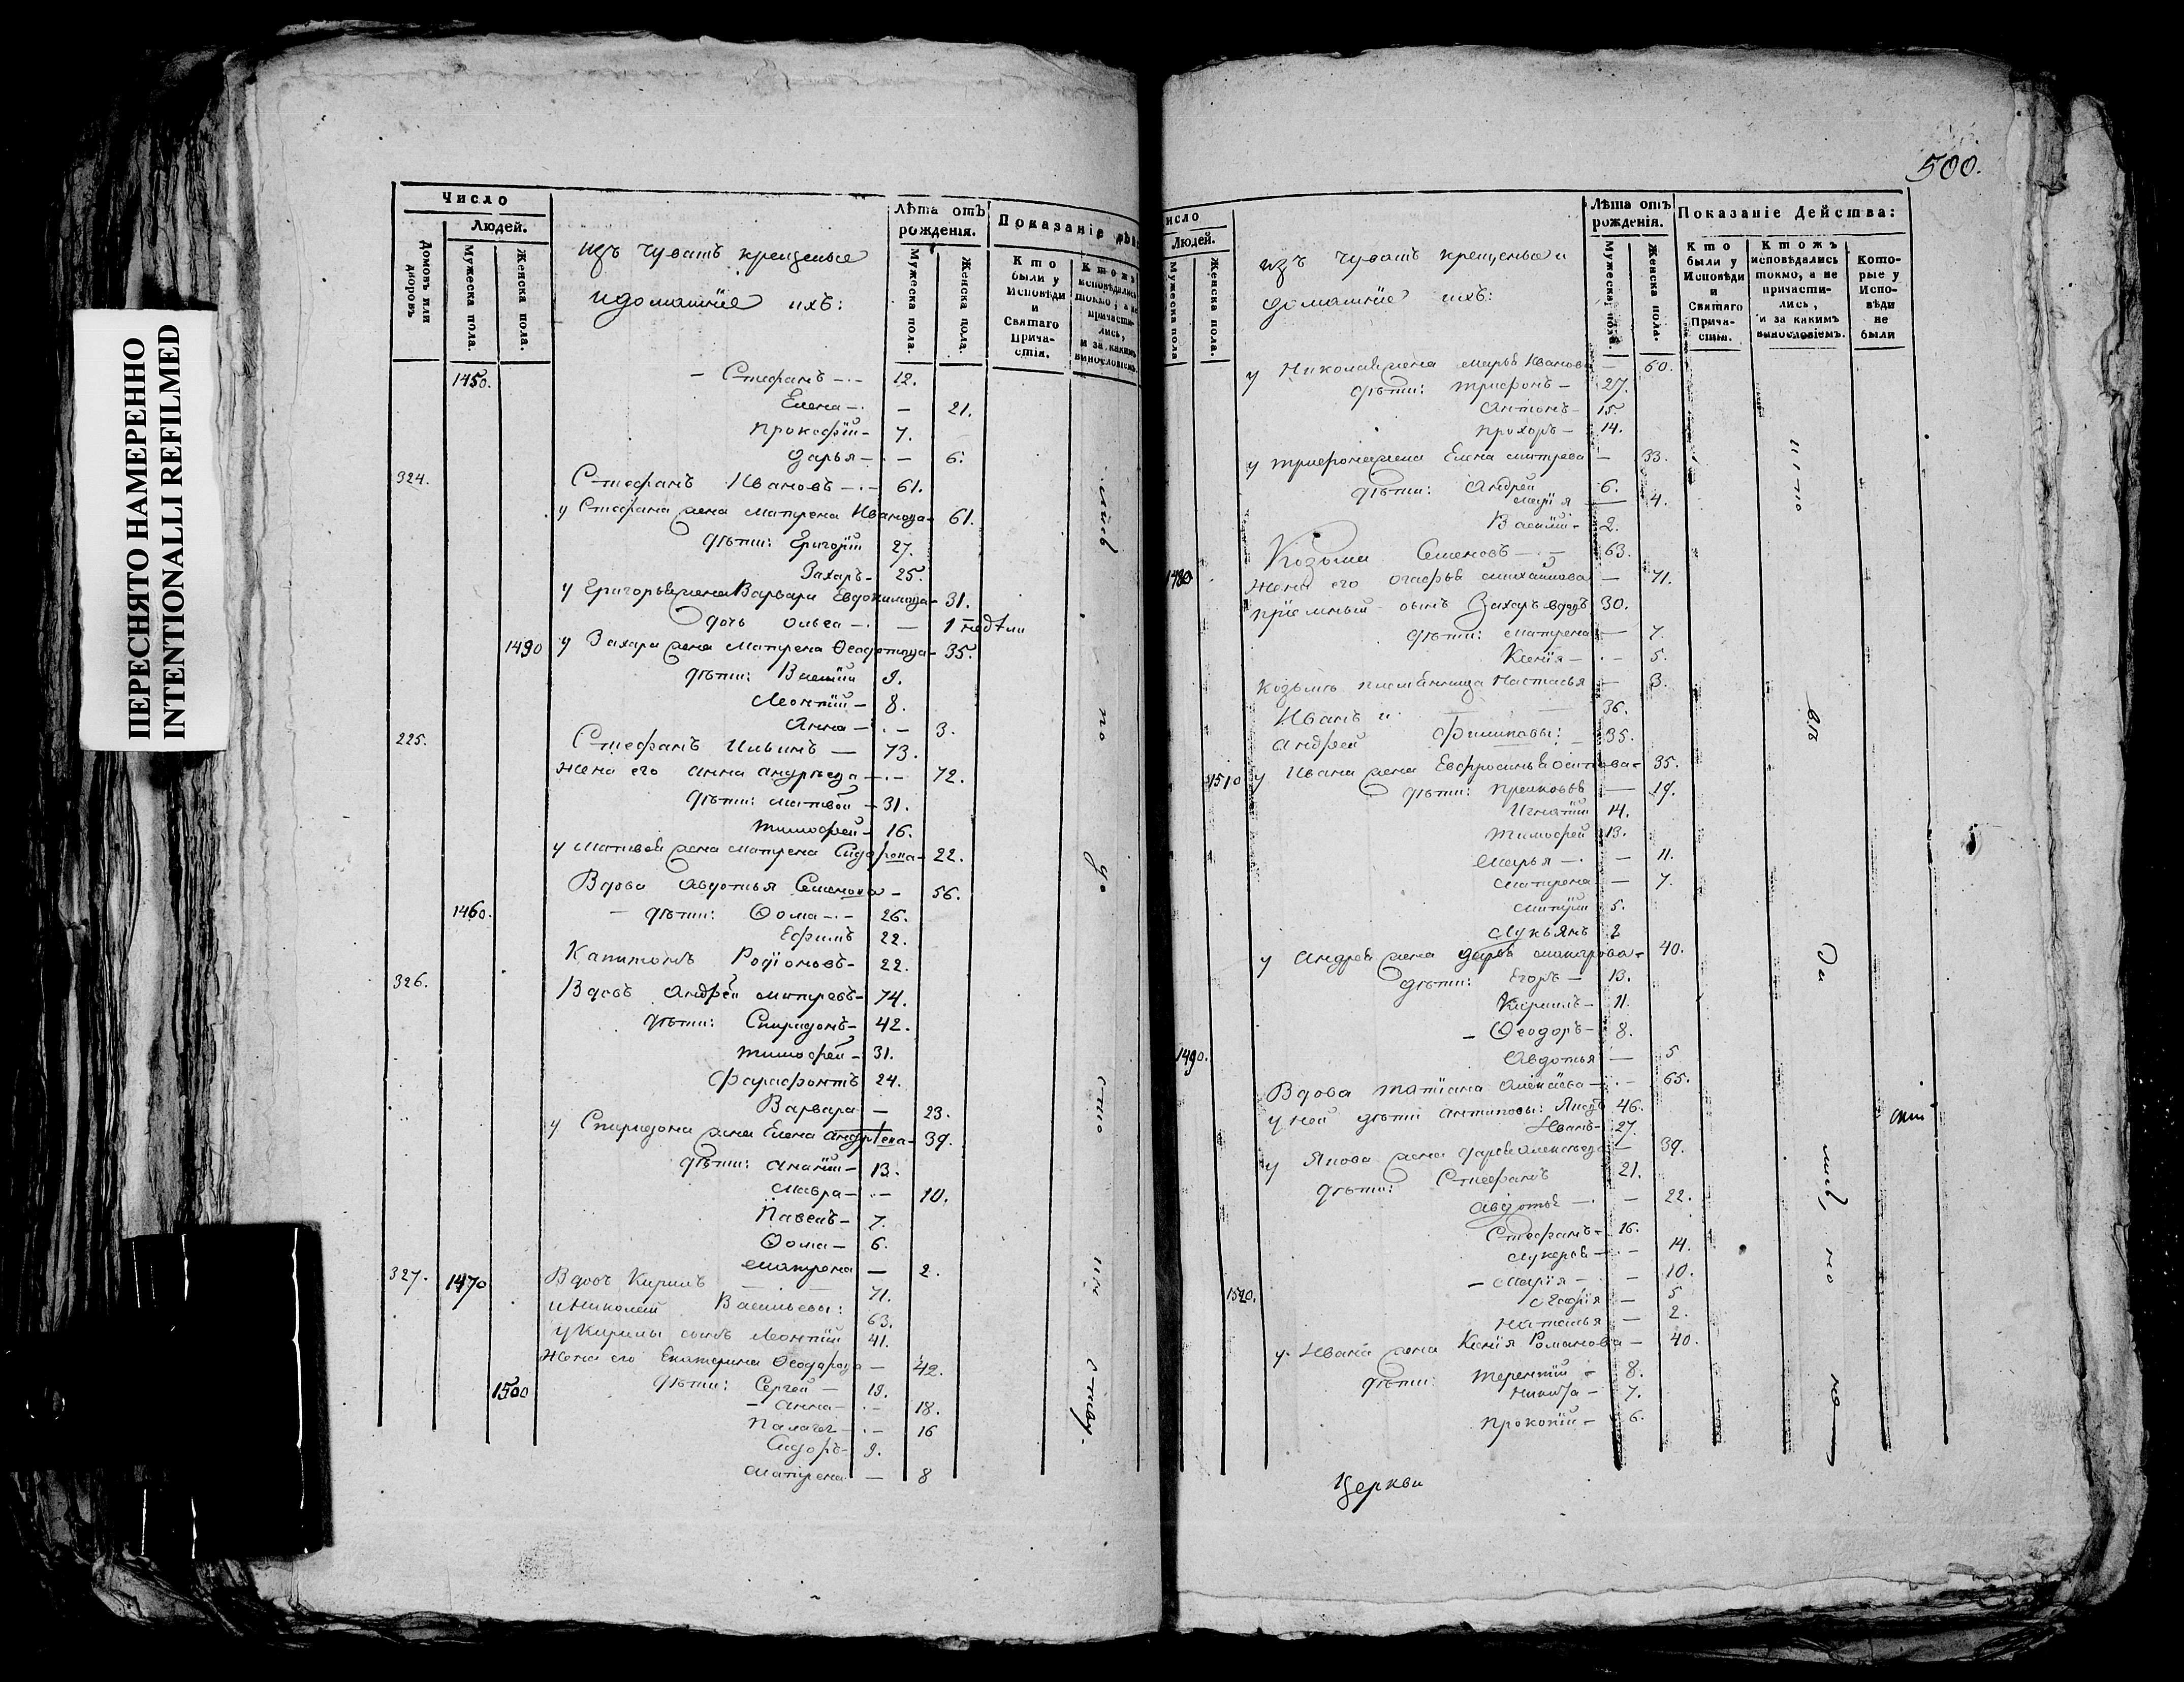 ПЕРЕСНЯТО НАМЕРЕННО
INTENTIONALLI REFILMED
Число
Людей.
Домовъ или дворовъ
Мужеска пола.
Женска пола.
изъ чувашъ крещеные
и домашніе ихъ:
Лѣта отъ рожденія.
Мужеска пола.
Женска пола.
Показаніе
Кто были у Исповѣди и Святаго Прича-стія.
1450. - Стефанъ 12.
Елена - 21.
Прокофій - 7.
Дарья - 6.
324. Стефанъ Ивановъ - 61.
у Стефана жена Матрена Иванова - 61.
дѣти: Григорій 27.
Захаръ - 25.
у Григорья жена Варвара Евдокимова - 31.
дочь Ольга - 1 недѣли
1490 у Захара жена Матрена Ѳеодотова - 35.
дѣти: Василій 9.
Леонтій - 8.
Анна - 3.
225. Стефанъ Ильинъ - 73.
Жена его Анна Андрѣева - 72.
дѣти: Матвей - 31.
Тимофей - 16.
у Матвея жена Матрена Сидорова - 22.
Вдова Авдотья Семенова - 56.
1460. - дѣти: Ѳома - 26.
Ефимъ 22.
Капитонъ Родіоновъ - 22.
326. Вдовъ Андрей Митревъ - 74.
дѣти: Спиридонъ - 42.
Тимофей - 31.
Фарафонтъ 24.
Варвара - 23.
у Спиридона жена Елена Андрѣева - 39.
дѣти: Ананій - 13.
Мавра - 10.
Павелъ - 7.
Ѳома - 6.
Матрена - 2.
327. 1470 Вдовъ Кирилъ - 71.
и Николай Васильевы: 63.
у Кирилы сынъ Леонтій 41.
Жена его Екатерина Ѳеодорова - 42.
1500 дѣти: Сергей - 19.
- Анна - 18.
Палагея - 16
Сидоръ - 9.
Матрена - 8
500.
исло
Людей.
Мужеска пола
Женска пола.
изъ чувашъ крещеные и
домашніе ихъ:
Лѣта отъ рожденія.
Мужеска пола
Женска пола.
Показаніе Действа:
Кто были у Исповѣди и Святаго Прича-стія.
Ктожъ исповѣдались токмо, а не причасти-лись, и за какимъ винословіемъ.
Кото-рые у Испо-вѣди не были
у Николая жена Марья Иванова - 60.
дѣти: Трифонъ - 27.
Антонъ - 15.
Прохоръ - 14.
у Трифона жена Елена Митрева - 33.
дѣти: Андрей 6.
Марія - 4.
Василій - 2.
Козьма Семеновъ - 63.
1480 Жена его Огафья Михайлова - 71.
пріемный сынъ Захаръ вдовъ 30.
дѣти: Матрена - 7.
Ксенія - 5.
Козьмы племянница Настасья - 3.
Иванъ и 36.
Андрей Филиповы: - 35.
1510 у Ивана жена Евфросинья Осипова - 35.
дѣти: - 19.
Игнатій 14.
Тимофей 13.
Марья - 11.
Матрена - 7.
Митрій 5.
Лукьянъ 2
у Андрея жена Дарья - 40.
дѣти: Егоръ - 13.
Кирилъ - 11.
- Ѳеодоръ - 8.
1490. Авдотья - 5
Вдова Татіана Алексѣева - 65.
у ней дѣти Антиповы: Яковъ 46.
Иванъ - 27.
у Якова жена Дарья Алексѣева - 39.
дѣти: Стефанъ 21.
Авдотья - 22.
Стефанъ - 16.
Лукерья - 14.
- Марія - 10.
1520. - 5
Наталья - 2.
у Ивана жена Ксенія Романова - 40.
дѣти: Терентій - 8.
Никита - 7.
Прокопій - 6.
Церкви